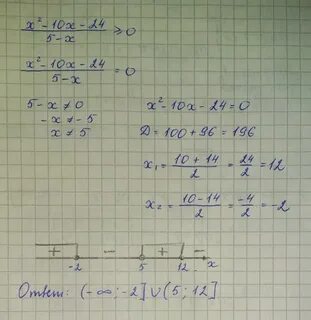 (x²-10x-24)/(5-x) ⩾ 0
(x²-10x-24)/(5-x) = 0
5-x ≠ 0    x²-10x-24=0
-x ≠ -5    D = 100+96 = 196
x ≠ 5    x₁ = (10+14)/2 = 24/2 = 12
x₂ = (10-14)/2 = -4/2 = -2
+ - + -
-2 5 12 x
Ответ: (-∞; -2] ∪ (5; 12]